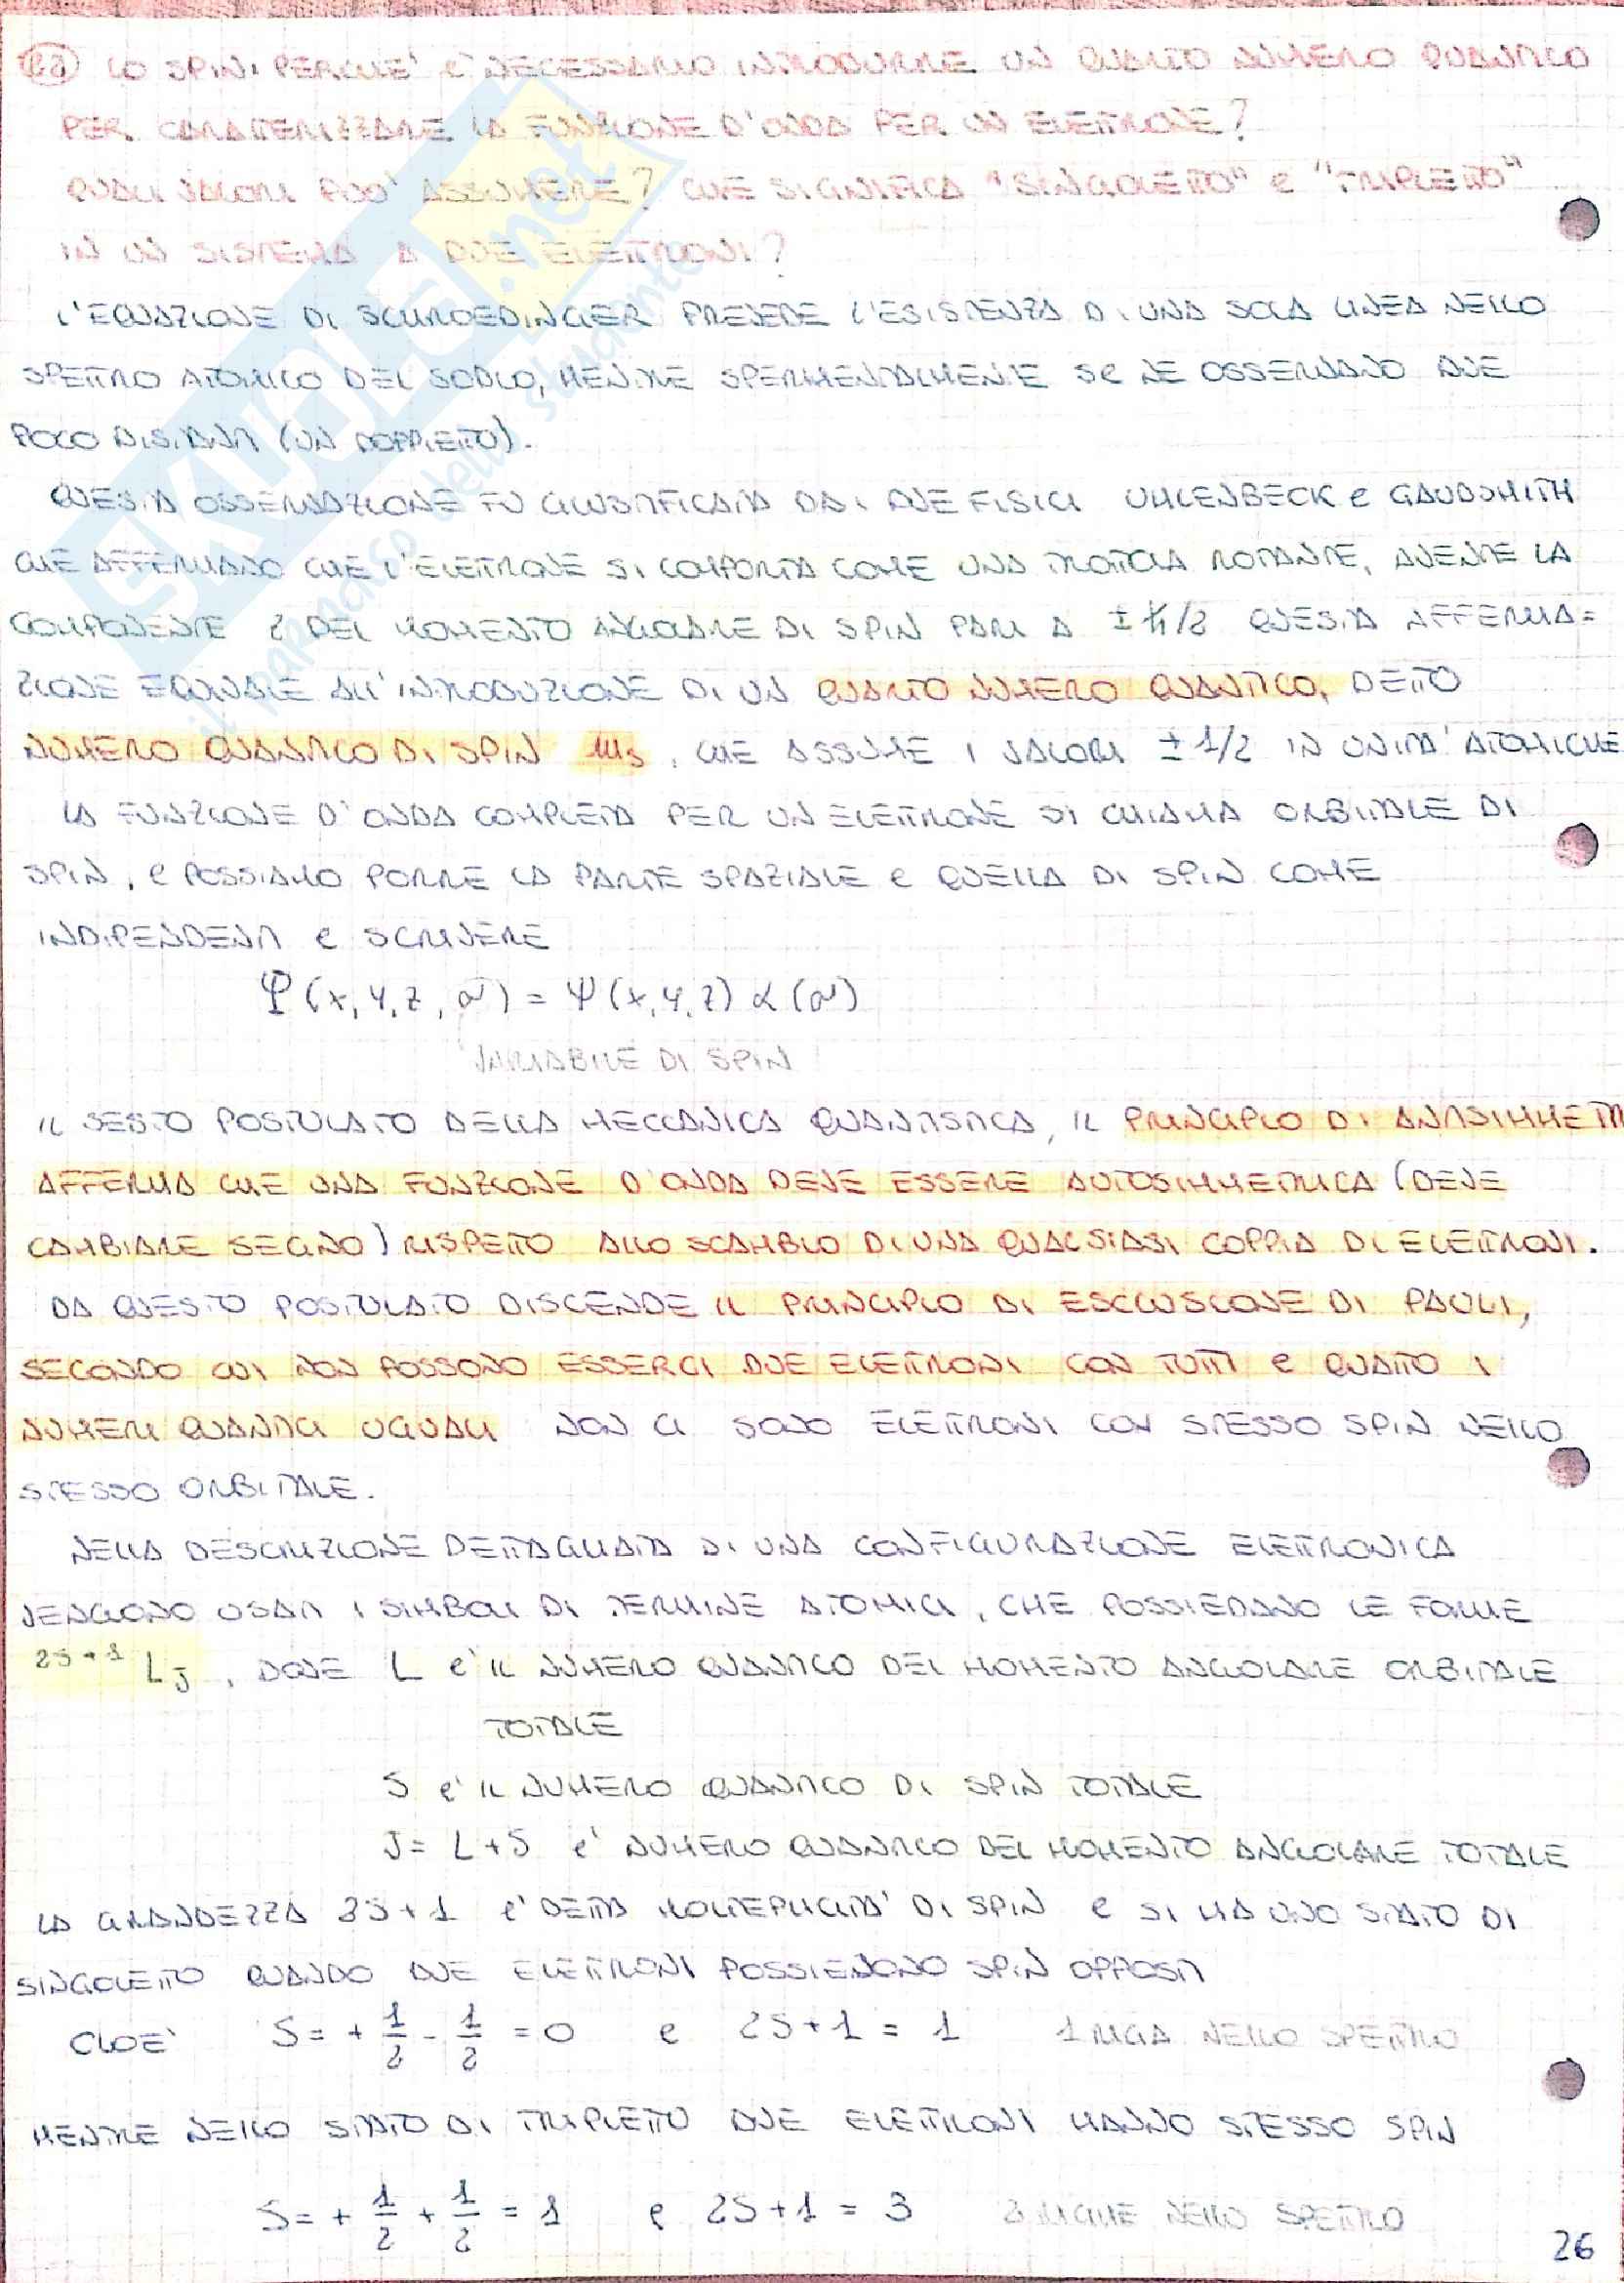 LO SPIN: PERCHE' E' NECESSARIO INTRODURRE UN QUARTO NUMERO QUANTICO
PER CARATTERIZZARE LA FUNZIONE D'ONDA PER UN ELETTRONE?
QUALI VALORI PUO' ASSUMERE? CHE SIGNIFICA "SINGOLETTO" E "TRIPLETTO"
IN UN SISTEMA A DUE ELETTRONI?
L'EQUAZIONE DI SCHROEDINGER PREVEDE L'ESISTENZA DI UNA SOLA LINEA NELLO
SPETTRO ATOMICO DEL SODIO, MENTRE SPERIMENTALMENTE SE NE OSSERVANO DUE
POCO DISTANTI (UN DOPPIETTO).
QUESTA OSSERVAZIONE FU GIUSTIFICATA DAI DUE FISICI UHLENBECK E GAUDSMITH
CHE AFFERMANO CHE L'ELETTRONE SI COMPORTA COME UNA TROTTOLA ROTANTE, AVENTE LA
COMPONENTE Z DEL MOMENTO ANGOLARE DI SPIN PARI A ± ħ/2 QUESTA AFFERMA=
ZIONE EQUIVALE ALL'INTRODUZIONE DI UN QUARTO NUMERO QUANTICO, DETTO
NUMERO QUANTICO DI SPIN ms, CHE ASSUME I VALORI ± 1/2 IN UNITA' ATOMICHE
LA FUNZIONE D'ONDA COMPLETA PER UN ELETTRONE SI CHIAMA ORBITALE DI
SPIN, E POSSIAMO PORRE LA PARTE SPAZIALE E QUELLA DI SPIN COME
INDIPENDENTI E SCRIVERE
Ψ (x, y, z, σ) = ψ (x, y, z) α (σ)
VARIABILE DI SPIN
IL SESTO POSTULATO DELLA MECCANICA QUANTISTICA, IL PRINCIPIO DI ANTISIMMETRI
AFFERMA CHE UNA FUNZIONE D'ONDA DEVE ESSERE AUTOSIMMETRICA (DEVE
CAMBIARE SEGNO) RISPETTO ALLO SCAMBIO DI UNA QUALSIASI COPPIA DI ELETTRONI.
DA QUESTO POSTULATO DISCENDE IL PRINCIPIO DI ESCLUSIONE DI PAULI,
SECONDO CUI NON POSSONO ESSERCI DUE ELETTRONI CON TUTTI E QUATTO I
NUMERI QUANTICI UGUALI NON CI SONO ELETTRONI CON STESSO SPIN NELLO
STESSO ORBITALE.
NELLA DESCRIZIONE DETTAGLIATA DI UNA CONFIGURAZIONE ELETTRONICA
VENGONO USATI I SIMBOLI DI TERMINE ATOMICI, CHE POSSIEDANO LE FORME
2S+1 LJ, DOVE L E' IL NUMERO QUANTICO DEL MOMENTO ANGOLARE ORBITALE
TOTALE
S E' IL NUMERO QUANTICO DI SPIN TOTALE
J = L + S E' NUMERO QUANTICO DEL MOMENTO ANGOLARE TOTALE
LA GRANDEZZA 2S+1 E' DETTA MOLTEPLICITA' DI SPIN E SI HA UNO STATO DI
SINGOLETTO QUANDO DUE ELETTRONI POSSIEDONO SPIN OPPOSTI
CIOE' S = + 1/2 - 1/2 = 0 E 2S+1 = 1 1 RIGA NELLO SPETTRO
MENTRE NELLO STATO DI TRIPLETTO DUE ELETTRONI HANNO STESSO SPIN
S = + 1/2 + 1/2 = 1 E 2S+1 = 3 3 RIGHE NELLO SPETTRO
26
SKUOLA.net
il paradiso dello studente